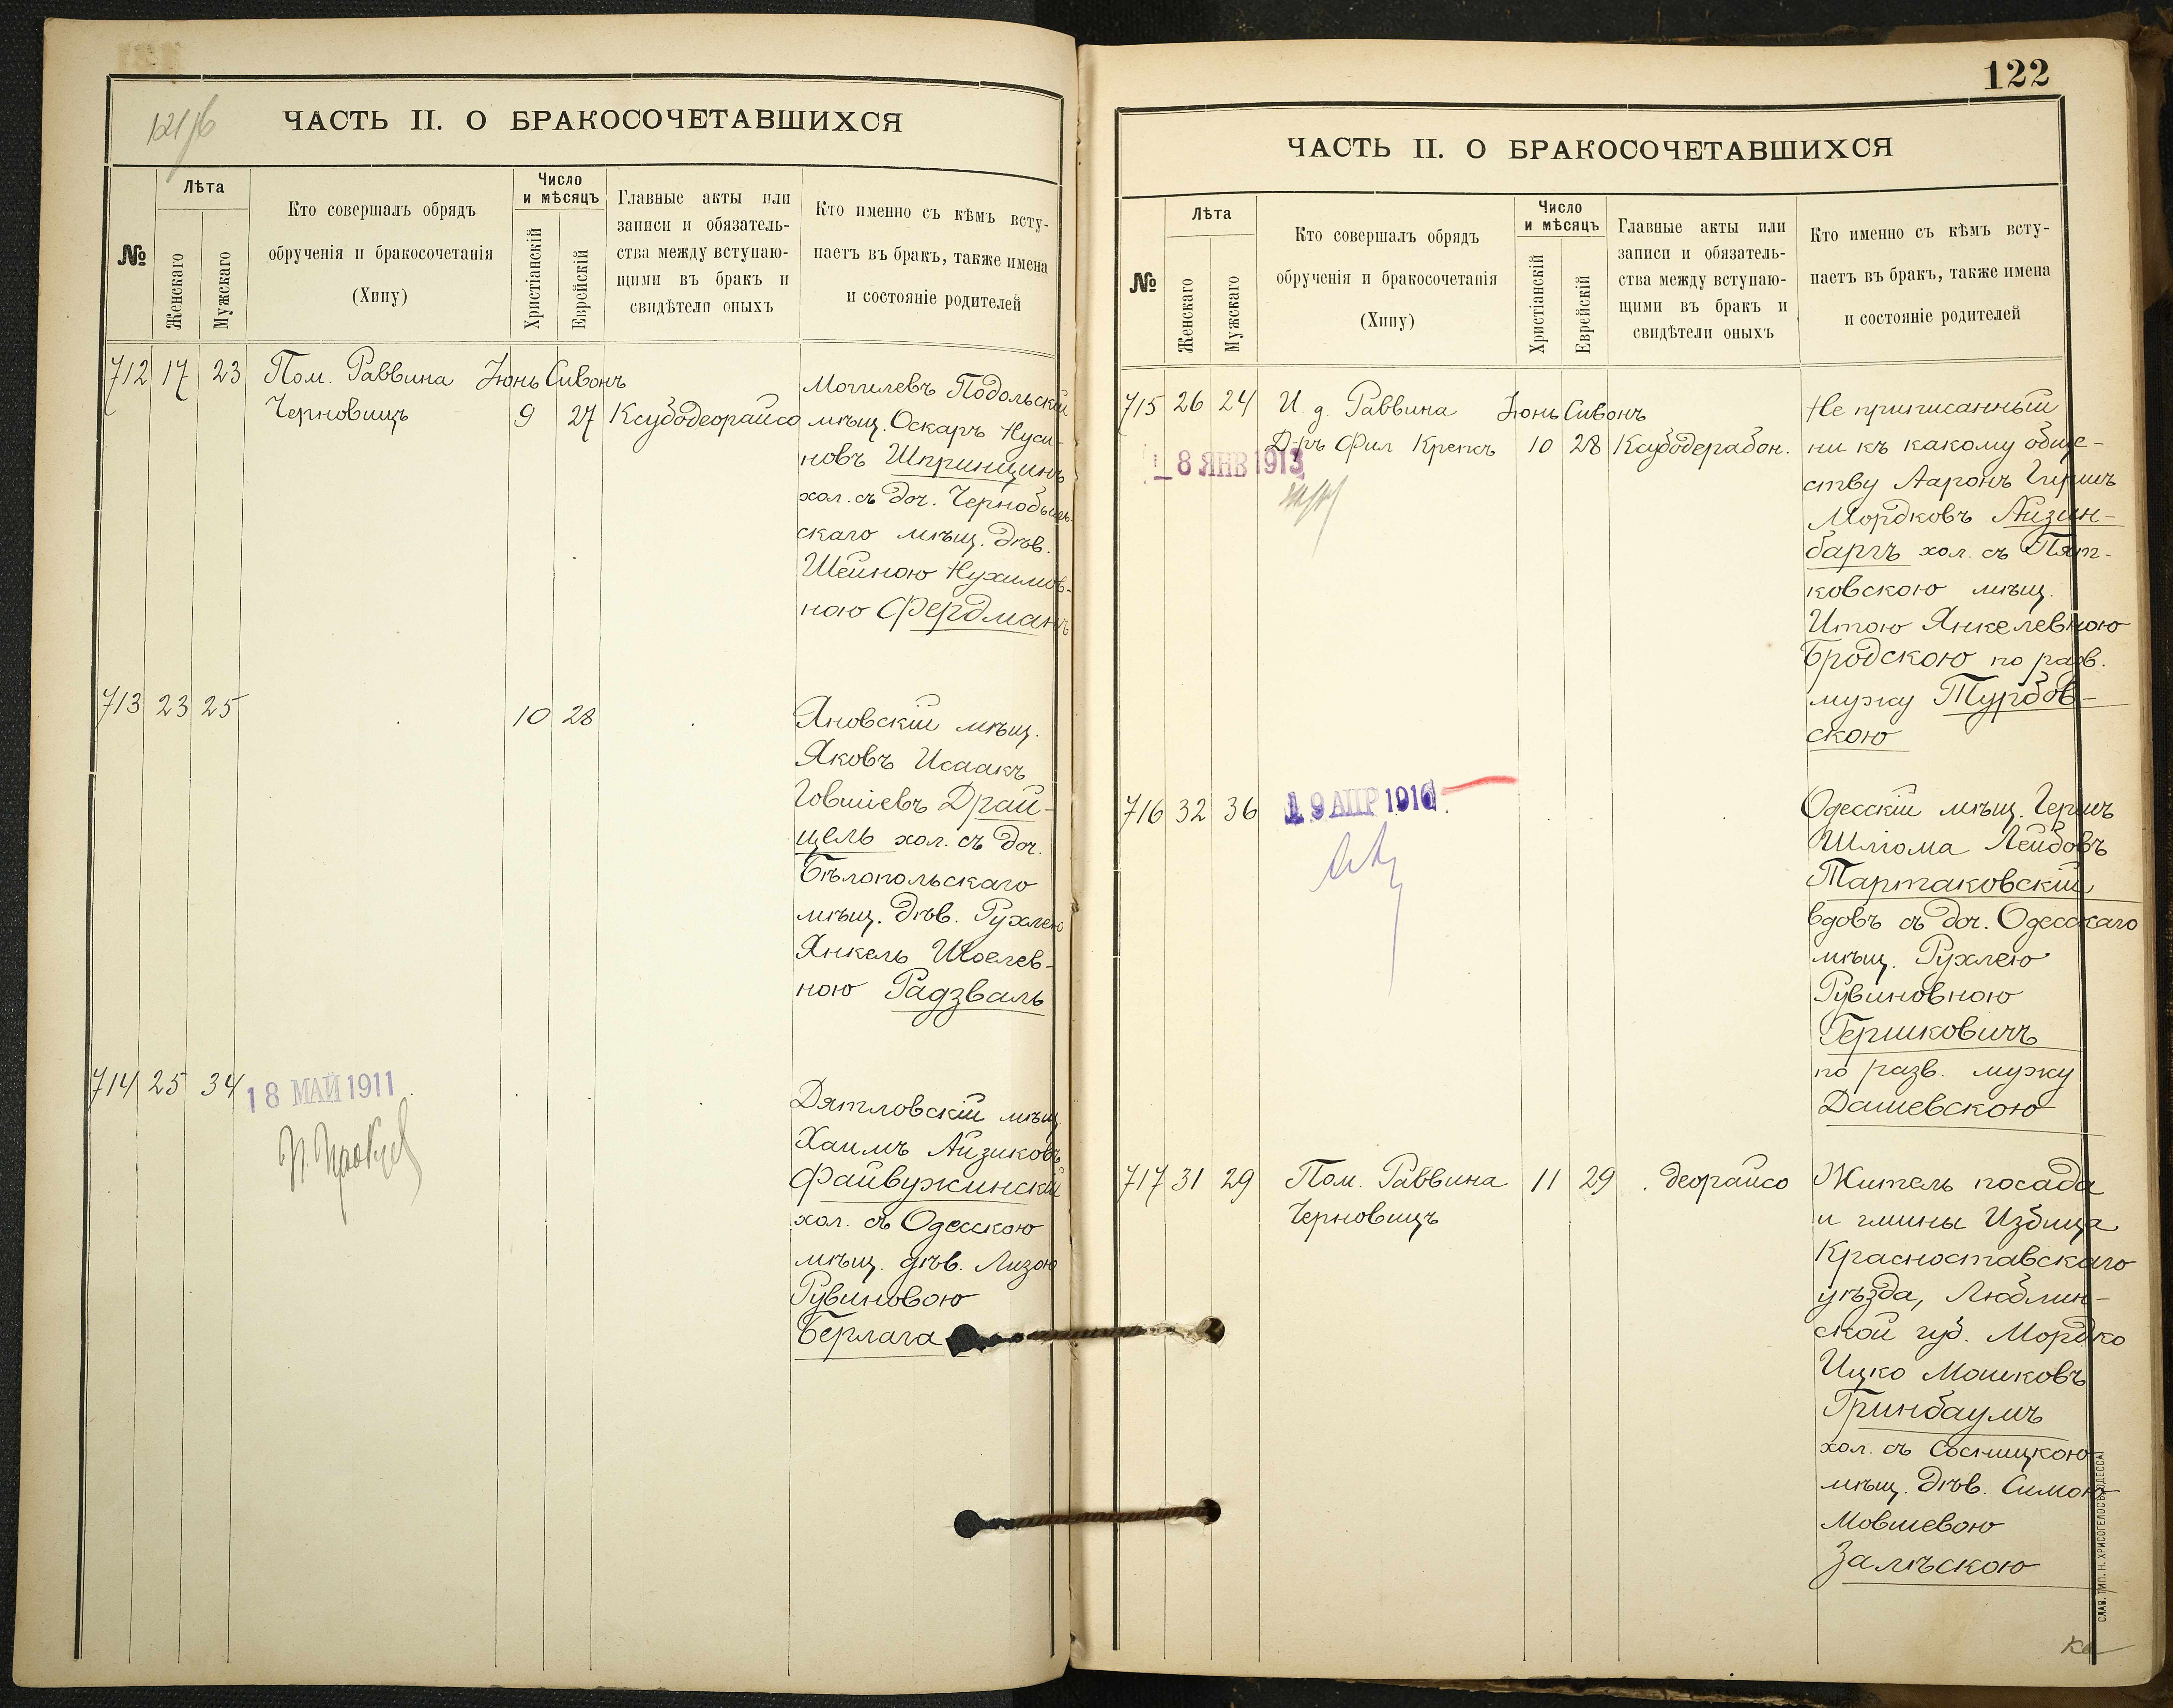 ЧАСТЬ II. О БРАКОСОЧЕТАВШИХСЯ
№
Лѣта
Женскаго
Мужскаго
Кто совершалъ обрядъ
обрученія и бракосочетанія
(Хипу)
Число
и мѣсяцъ
Христіанскій
Еврейскій
Главные акты или
записи и обязатель-
ства между вступаю-
щими въ бракъ и
свидѣтели оныхъ
Кто именно съ кѣмъ всту-
паетъ въ бракъ, также имена
и состояніе родителей
712 17 23 Пом. Раввина Іюнь Сивонъ
Черновицъ 9 27 Ксубодеорайсо
Могилевъ Подольскій
мѣщ. Оскаръ Нуси-
новъ Шпринцинъ
хол. съ доч. Чернобыль-
скаго мѣщ. дѣв.
Шейною Нухимов-
ною Фердманъ
713 23 25 10 28
Яновскій мѣщ.
Яковъ Исаакъ
Іовшіевъ Драй-
цель хол. съ доч.
Бѣлопольскаго
мѣщ. дѣв. Рухлею
Янкель Шоелев-
ною Радзваль
714 25 34
18 МАЙ 1911
Дятловскій мѣщ
Хаимъ Айзиковъ
Файвужинскій
хол. съ Одесскою
мѣщ. дѣв. Лизою
Рувиновою
Берлага
122
ЧАСТЬ II. О БРАКОСОЧЕТАВШИХСЯ
№
Лѣта
Женскаго
Мужскаго
Кто совершалъ обрядъ
обрученія и бракосочетанія
(Хипу)
Число
и мѣсяцъ
Христіанскій
Еврейскій
Главные акты или
записи и обязатель-
ства между вступаю-
щими въ бракъ и
свидѣтели оныхъ
Кто именно съ кѣмъ всту-
паетъ въ бракъ, также имена
и состояніе родителей
715 26 24 И. д. Раввина Іюнь Сивонъ
Д-ръ Фил Крепсъ 10 28 Ксубодерабон.
8 ЯНВ 1913
Не приписанный
ни къ какому обще-
ству Ааронъ Гершъ
Мордковъ Айзин-
баргъ хол. съ Пят-
ковскою мѣщ.
Итою Янкелевною
Бродскою по разв.
мужу Турбов-
скою
716 32 36
19 АПР 1916
Одесскій мѣщ. Гершъ
Шліома Лейбовъ
Тартаковскій
вдовъ съ доч. Одесскаго
мѣщ. Рухлею
Рувиновною
Гершковичъ
по разв. мужу
Дашевскою
717 31 29 Пом. Раввина 11 29 . деорайсо
Черновицъ
Житель посада
и гмины Избица
Красноставскаго
уѣзда, Люблин-
ской губ. Мордко
Ицко Мошковъ
Гринбаумъ
хол. съ Сосницкою
мѣщ. дѣв. Симою
Мовшевою
Залѣскою
СЛАВ. ТИП. Н. ХРИСОГЕЛОСЪ, ОДЕССА